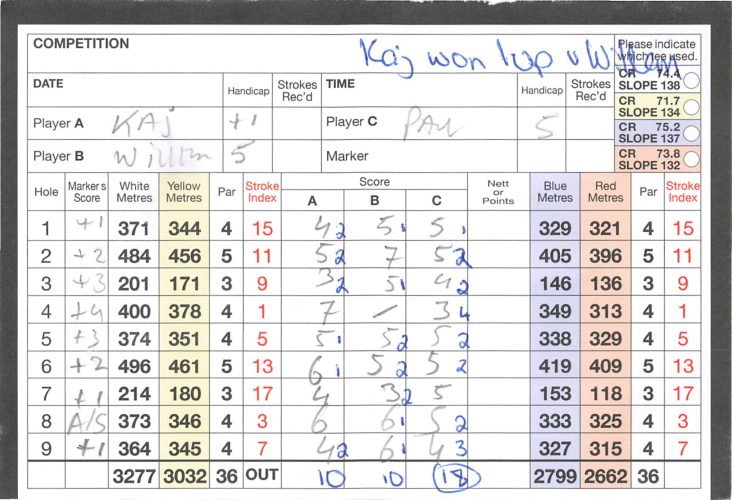 COMPETITION Kaj won 1up v Willem Please indicate which tee used.
DATE Handicap Strokes Rec'd TIME Handicap Strokes Rec'd CR 74.4 SLOPE 138
Player A KAJ +1 Player C PAUL 5 CR 71.7 SLOPE 134
CR 75.2 SLOPE 137
Player B Willem 5 Marker CR 73.8 SLOPE 132
Hole Marker's Score White Metres Yellow Metres Par Stroke Index Score A B C Nett or Points Blue Metres Red Metres Par Stroke Index
1 +1 371 344 4 15 4 2 5 1 5 1 329 321 4 15
2 +2 484 456 5 11 5 2 7 5 2 405 396 5 11
3 +3 201 171 3 9 3 2 5 1 4 2 146 136 3 9
4 +4 400 378 4 1 7 / 3 4 349 313 4 1
5 +3 374 351 4 5 5 1 5 2 5 2 338 329 4 5
6 +2 496 461 5 13 6 1 5 2 5 2 419 409 5 13
7 +1 214 180 3 17 4 3 2 5 153 118 3 17
8 A/S 373 346 4 3 6 6 1 5 2 333 325 4 3
9 +1 364 345 4 7 4 2 6 1 4 3 327 315 4 7
3277 3032 36 OUT 10 10 18 2799 2662 36